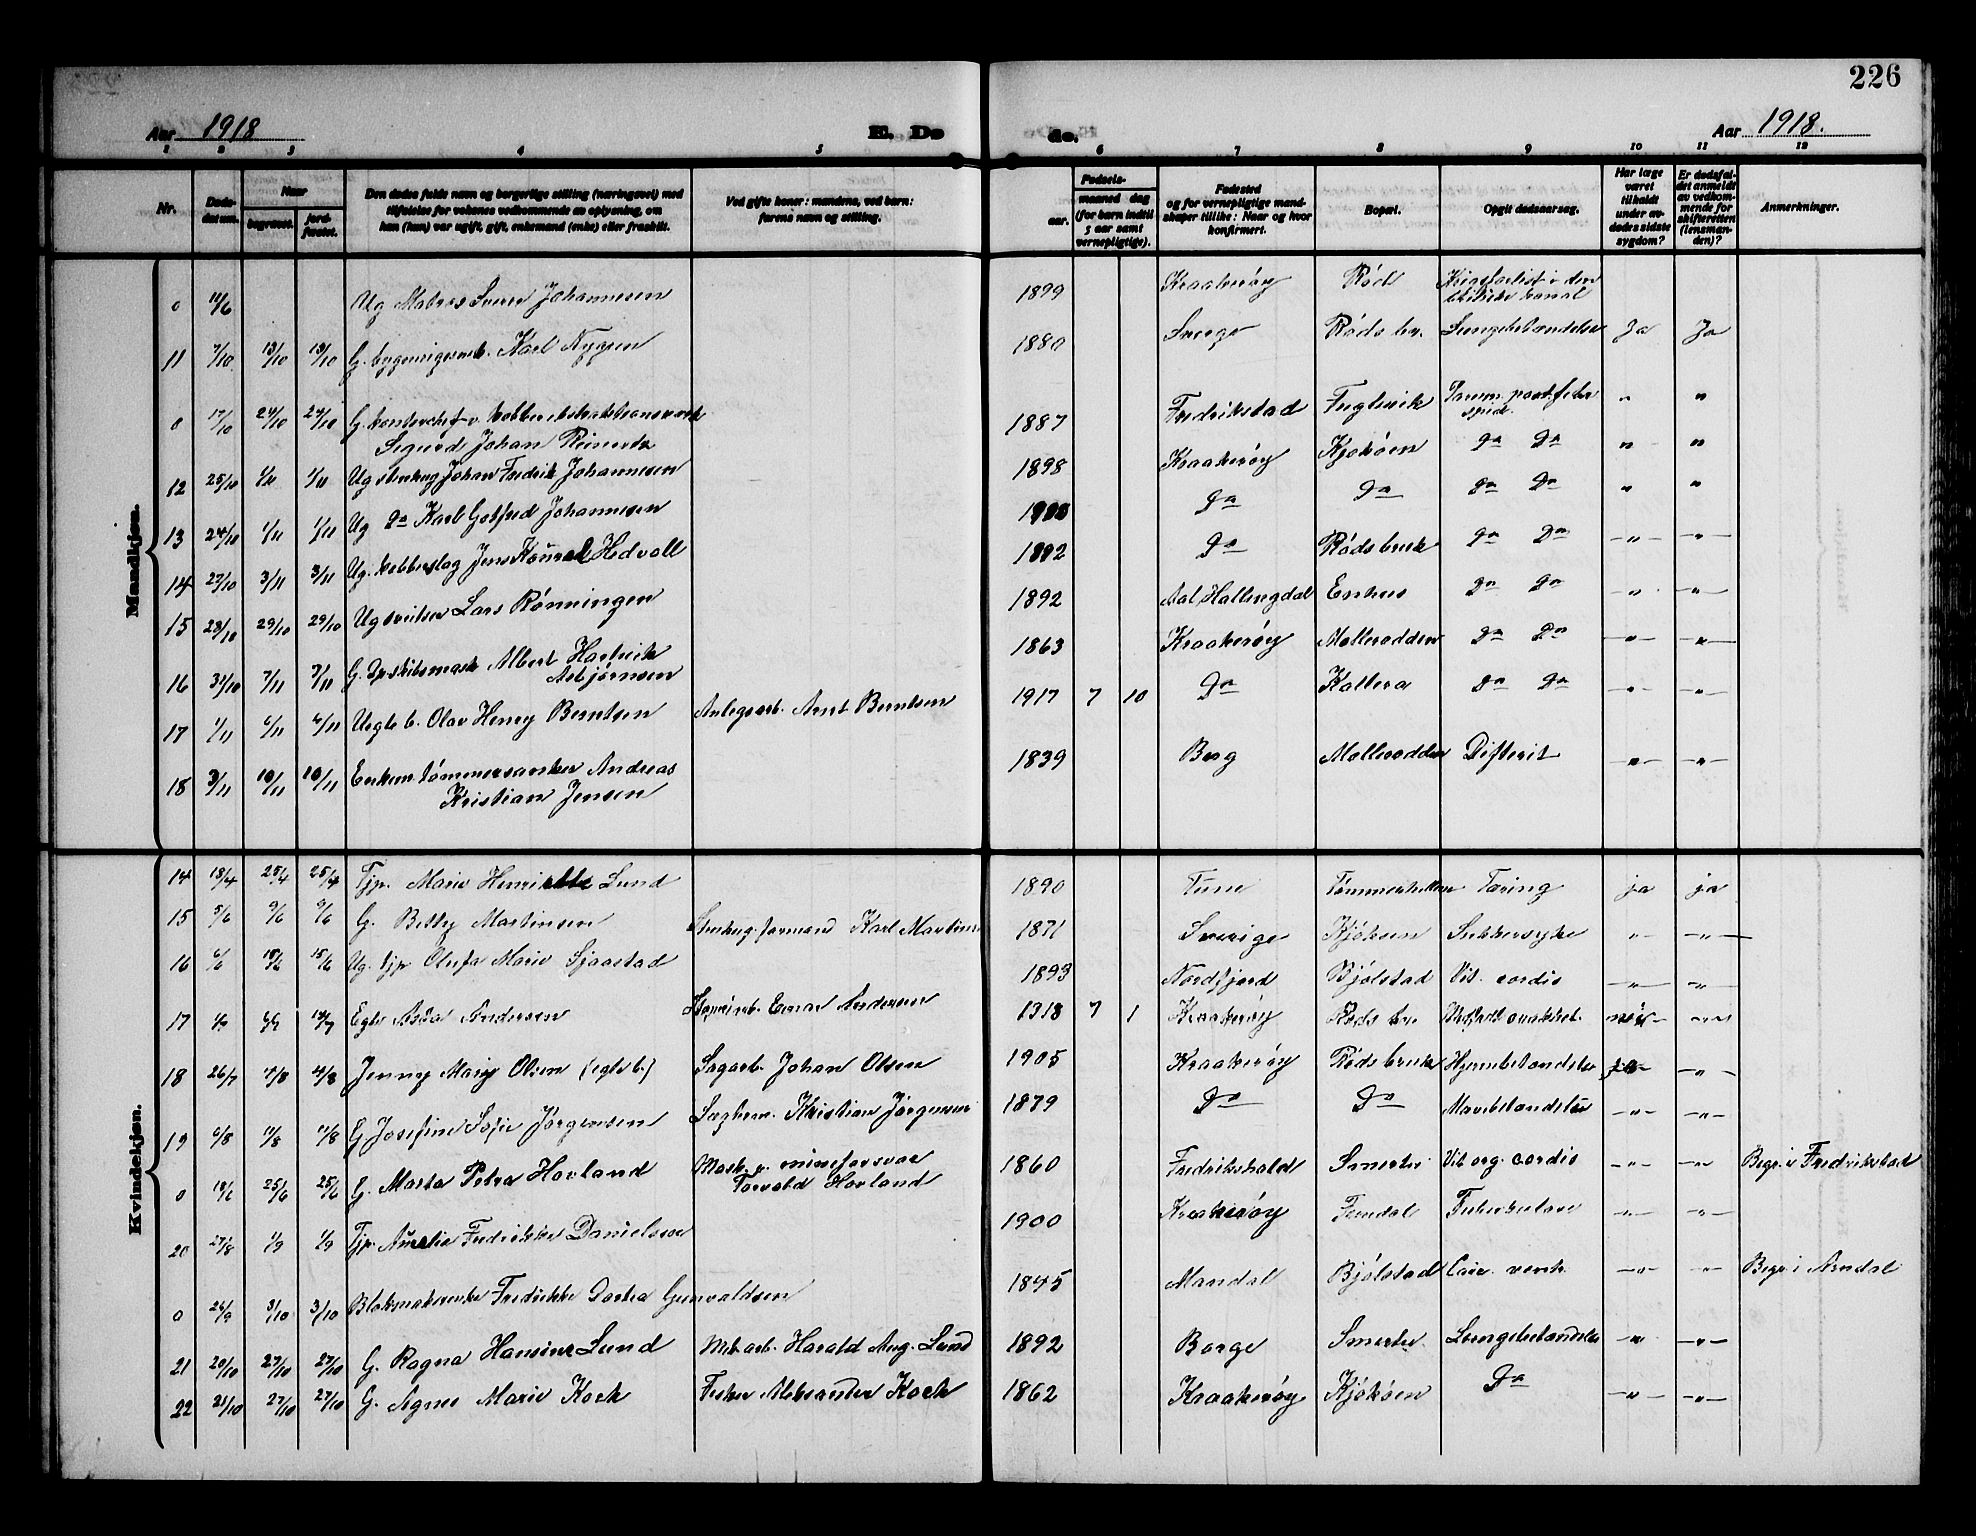 226
Aar 1918
E. Dø
de.
Aar 1918.
1 2 3 4 5 6 7 8 9 10 11 12
Nr.
Døds-
datum.
Naar
begravet.
jord-
fæstet.
Den dødes fulde navn og borgerlige stilling (næringsvei) med
tilføielse for voksnes vedkommende av oplysning, om
han (hun) var ugift, gift, enkemand (enke) eller fraskilt.
Ved gifte koner: mandens, ved barn:
farens navn og stilling.
Fødsels-
aar.
maaned dag
(for barn indtil
5 aar samt
vernepligtige).
Fødested
og for vernepligtige mand-
skaper tillike: Naar og hvor
konfirmert.
Bopæl.
Opgit dødsaarsag.
Har læge
været
tilkaldt
under av-
dødes sidste
sygdom?
Er dødsfal-
det anmeldt
av vedkom-
mende for
skifteretten
(lensman-
den)?
Anmerkninger.
Mandkjøn.
0 Ug Matros Sverre Johannesen 1899 Kraakerøy Rød Krigsforlist i den kanal
11 7/10 13/10 13/10 G. bygningsarb. Karl Nygren 1880 Sverge Røds br. Lungebetændelse Ja Ja
0 17/10 24/10 24/10 G. kontorchef v.
Sigurd Johan Reinertz 1887 Fredrikstad Fuglevik " "
12 25/10 1/11 1/11 Ug stenhug Johan Fredrik Johannesen 1898 Kraakerøy Kjøkøen Do Do " "
13 24/10 1/11 1/11 Ug Do Karl Gotfred Johannesen 1900 Do Do Do Do " "
14 27/10 3/11 3/11 Ug. kobberslag Jens Konrad Hedvall 1892 Do Røds bruk Do Do -"- -"-
15 28/10 29/10 29/10 Ug sveiser Lars Rønningen 1892 Aal, Hallingdal Enhus Do Do -"- -"-
16 31/10 7/11 7/11 G. Albert Hartvik
Asbjørnsen 1863 Kraakerøy Mølleodden Do Do -"- -"-
17 1/11 6/11 6/11 Uegte b. Olav Henry Berntsen Anlegsarb. Arnt Berntsen 1917 7 10 Do Kallera Do Do -"- -"-
18 3/11 10/11 10/11 Enkem. tømmersanker Andreas
Kristian Jensen 1839 Berg Mølleodden Difterit -"- -"-
Kvindekjøn.
14 18/4 25/4 25/4 Tjp. Marie Henriette Lund 1890 Tune Tæring ja ja
15 5/6 9/6 9/6 G. Betty Martinsen Stenhug.formand Karl Martins 1871 Sverige Kjøkøen Sukkersyke -"- -"-
16 6/6 15/6 15/6 Ug. tjp Olufa Marie Sjaastad 1893 Nordfjord Bjølstad Vit. cordis -"- -"-
17 Egte Asta Andersen Einar Andersen 1918 7 1 Kraakerøy Røds br. nei -"-
18 26/7 4/8 4/8 Jenny Mary Olsen (egte b.) Sagarb. Johan Olsen 1905 Kraakerøy Røds bruk Hjernebetændelse ja -"-
19 6/8 11/8 11/8 G Josefine Sofie Jørgensen Kristian Jørgensen 1879 Do Do Mavebetændelse -"- -"-
0 25/6 25/6 G. Marta Petra Hovland Mask. v. mineforsvar
Torvald Hovland 1860 Fredrikshald Smertu Vit org. cordis -"- -"- Begr. i Fredrikstad
20 27/8 1/9 1/9 Tjp. Aurelie Fredrikke Danielsen 1900 Kraakerøy Femdal Tuberkulose -"- -"-
0 26/9 3/10 3/10 Blokmakerenke Fredrikke Dortea Gunvaldsen 1845 Mandal Bjølstad Carc. ventr. -"- -"- Begr. i Arndal
21 20/10 27/10 27/10 G. Ragna Hansine Lund Mek.arb. Harald Aug. Lund 1892 Borge Smertu Lungebetændelse -"- -"-
22 21/10 27/10 27/10 G. Agnes Marie Kock Fisker Aleksander Kock 1862 Kraakerøy Kjøkøen Do -"- -"-